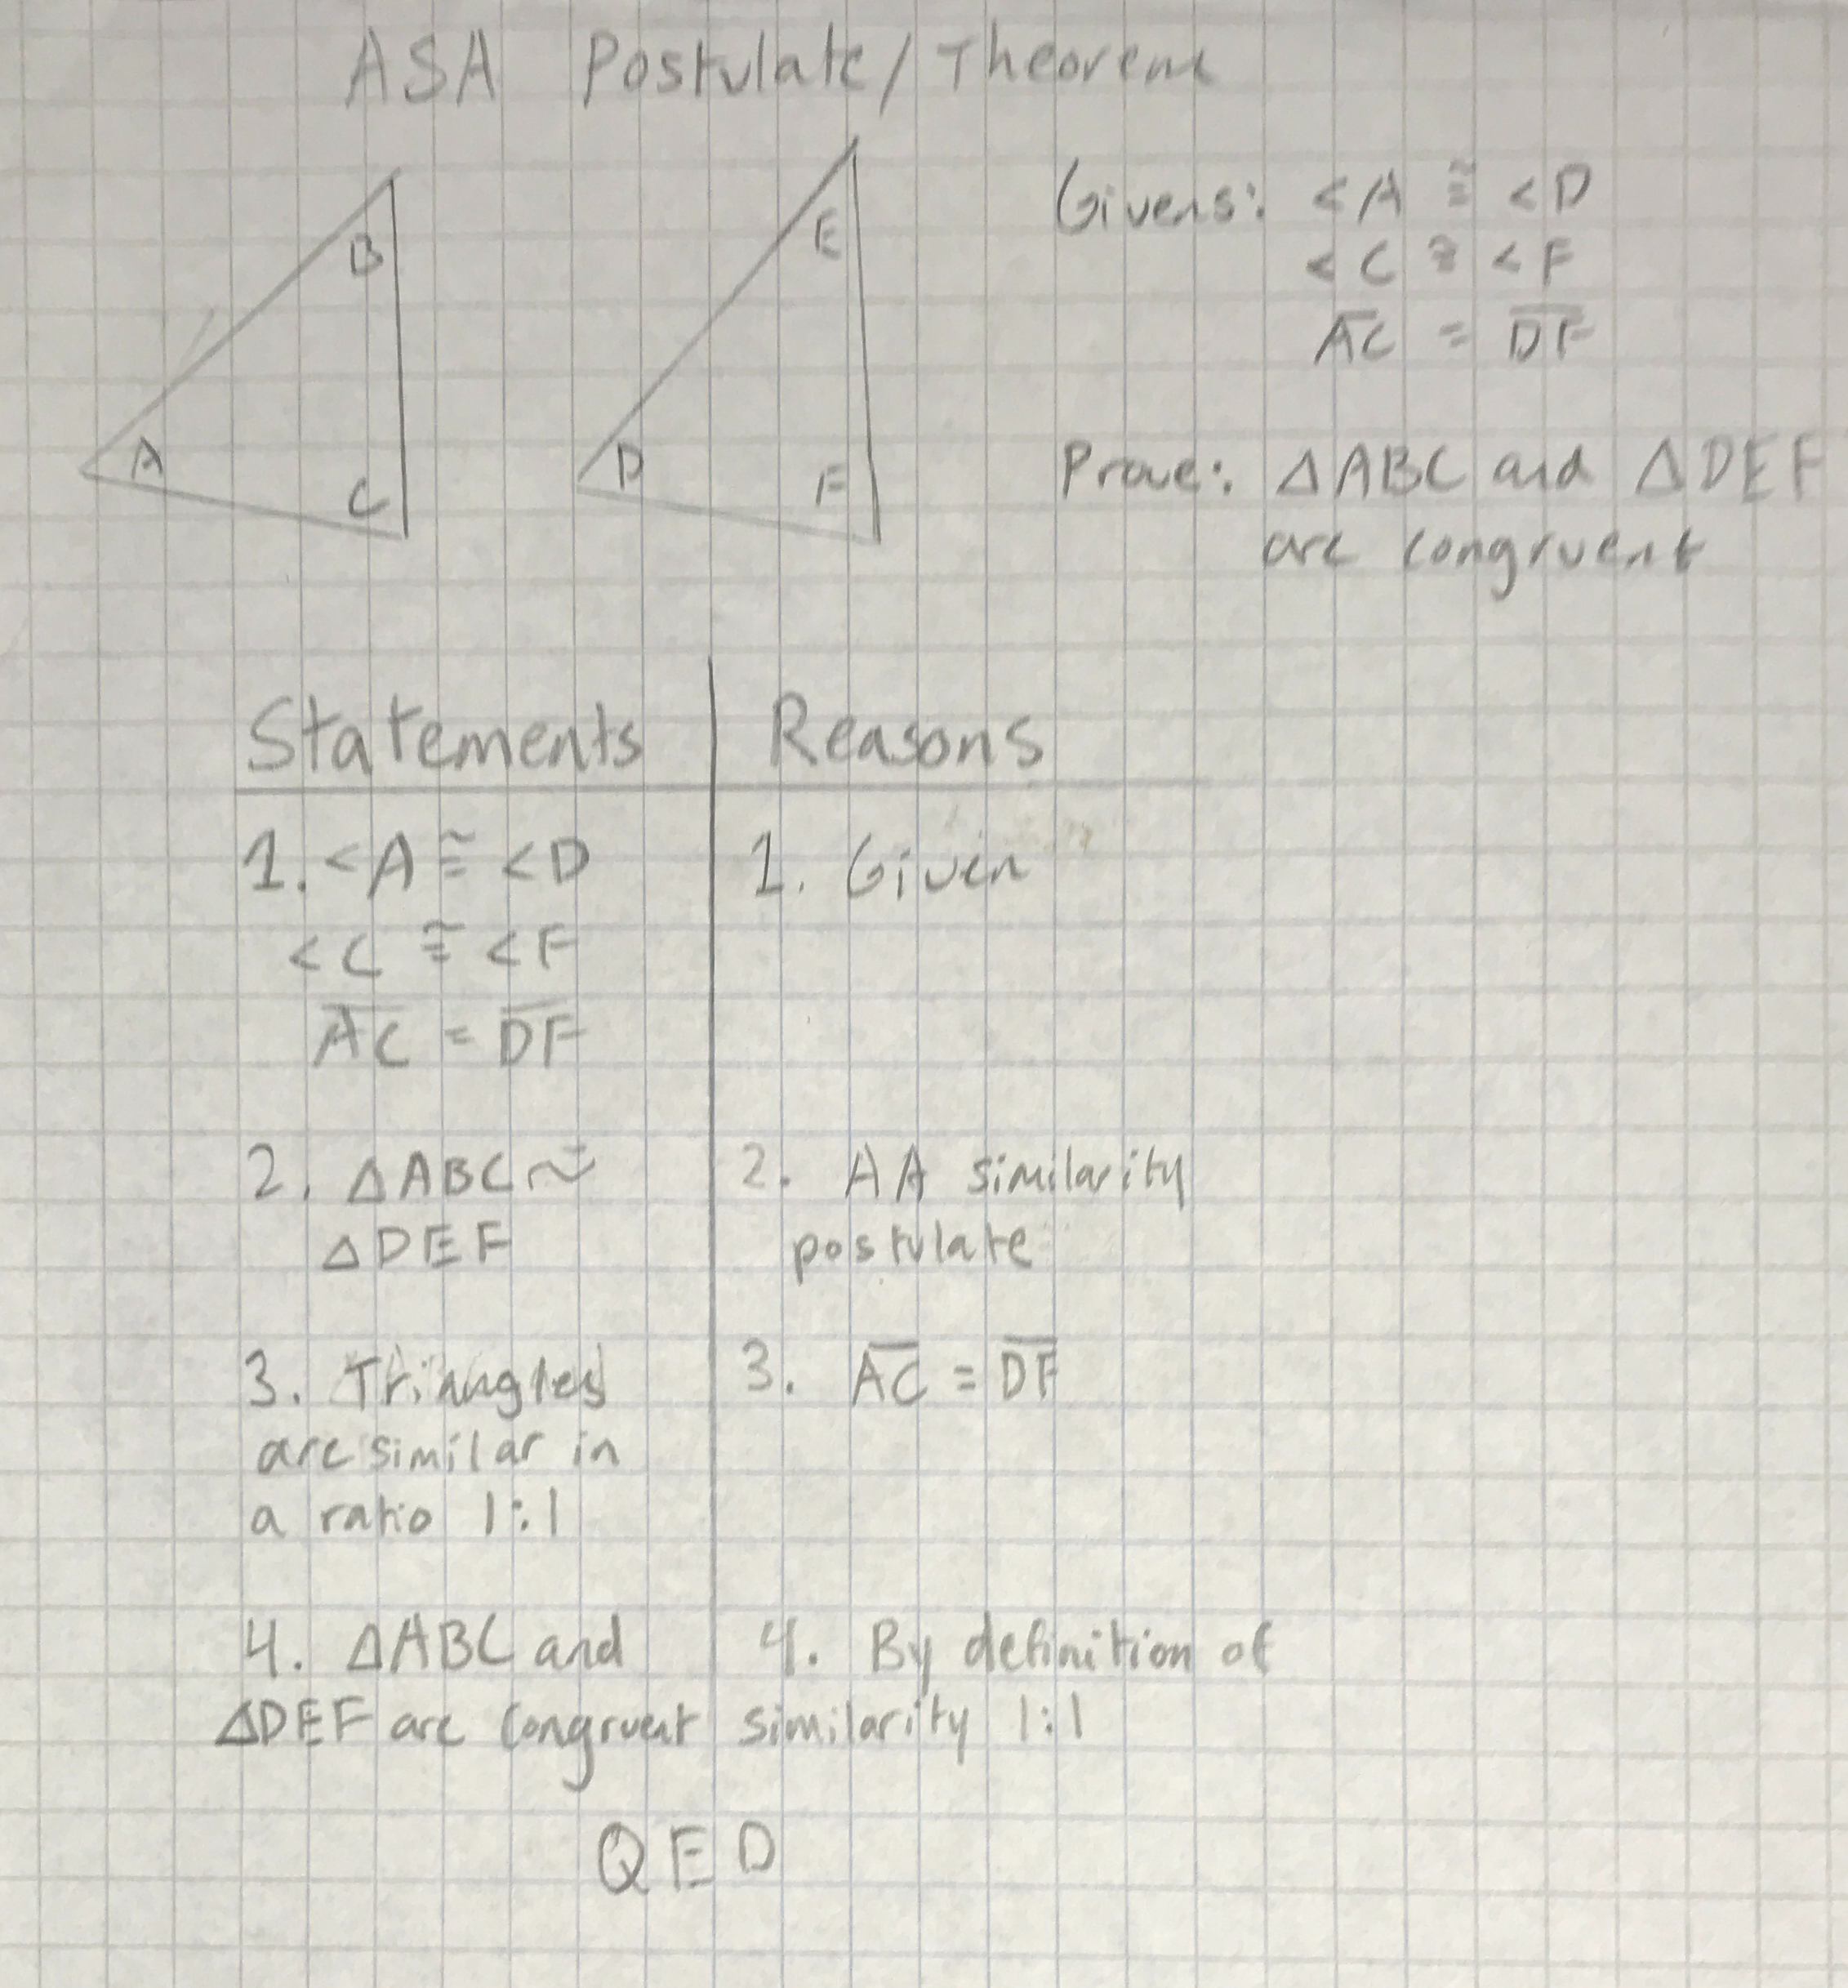 ASA Postulate/Theorem
B
A
C
E
D
F
Givens: <A ≅ <D
<C ≅ <F
A̅C̅ = D̅F̅
Prove: △ABC and △DEF
are congruent
Statements
Reasons
1. <A ≅ <D
<C ≅ <F
A̅C̅ = D̅F̅
1. Given
2. △ABC ~
△DEF
2. AA similarity
postulate
3. Triangles
are similar in
a ratio 1:1
3. A̅C̅ = D̅F̅
4. △ABC and
△DEF are congruent
4. By definition of
similarity 1:1
QED